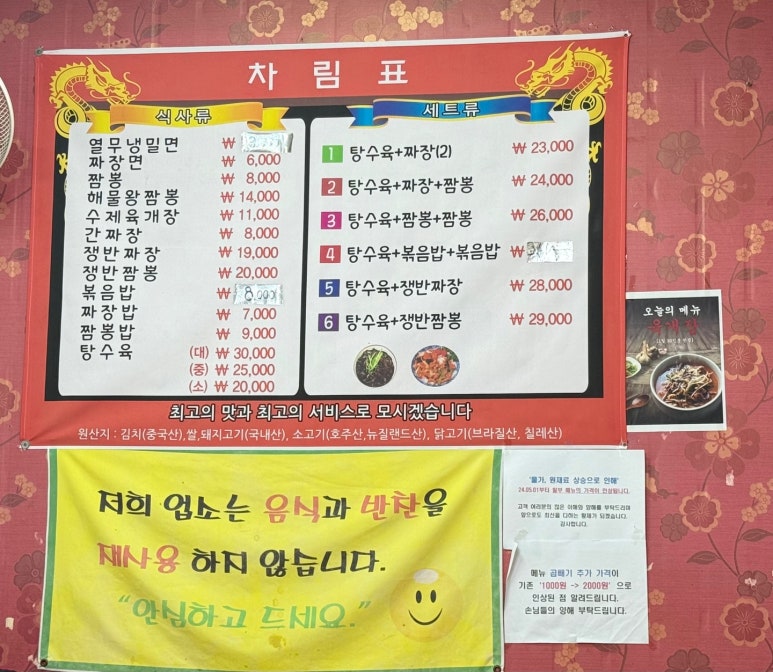 차 림 표
식사류
열무냉밀면 ₩
짜장면 ₩ 6,000
짬뽕 ₩ 8,000
해물왕짬뽕 ₩ 14,000
수제육개장 ₩ 11,000
간짜장 ₩ 8,000
쟁반짜장 ₩ 19,000
쟁반짬뽕 ₩ 20,000
볶음밥 ₩ 8,000
짜장밥 ₩ 7,000
짬뽕밥 ₩ 9,000
탕수육 (대) ₩ 30,000
(중) ₩ 25,000
(소) ₩ 20,000
세트류
1 탕수육+짜장(2) ₩ 23,000
2 탕수육+짜장+짬뽕 ₩ 24,000
3 탕수육+짬뽕+짬뽕 ₩ 26,000
4 탕수육+볶음밥+볶음밥 ₩
5 탕수육+쟁반짜장 ₩ 28,000
6 탕수육+쟁반짬뽕 ₩ 29,000
최고의 맛과 최고의 서비스로 모시겠습니다
원산지 : 김치(중국산),쌀,돼지고기(국내산), 소고기(호주산,뉴질랜드산), 닭고기(브라질산, 칠레산)
오늘의 메뉴
육개장
저희 업소는 음식과 반찬을
재사용 하지 않습니다.
"안심하고 드세요."
'물가, 원재료 상승으로 인해'
24.05.01부터 일부 메뉴의 가격이 인상됩니다.
고객 여러분의 많은 이해와 양해를 부탁드리며
앞으로도 최선을 다하는 황제가 되겠습니다.
감사합니다.
메뉴 곱배기 추가 가격이
기존 '1000원 -> 2000원' 으로
인상된 점 알려드립니다.
손님들의 양해 부탁드립니다.